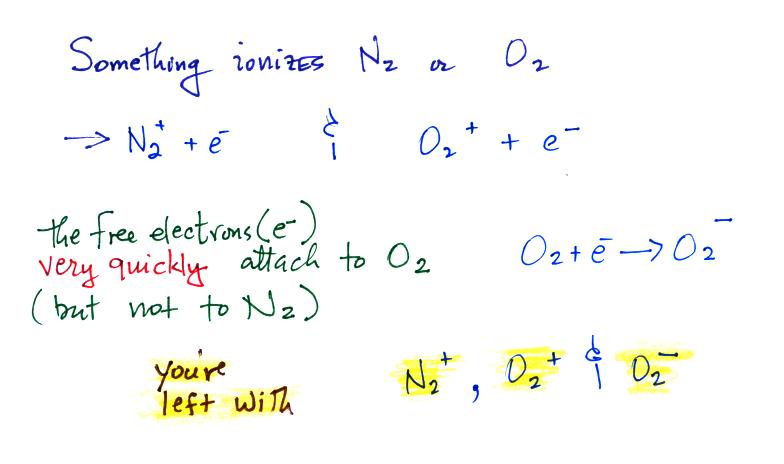 Something ionizes N₂ or O₂
→ N₂⁺ + e⁻ & O₂⁺ + e⁻
the free electrons (e⁻)
very quickly attach to O₂ O₂ + e⁻ → O₂⁻
(but not to N₂)
you're
left with N₂⁺, O₂⁺ & O₂⁻